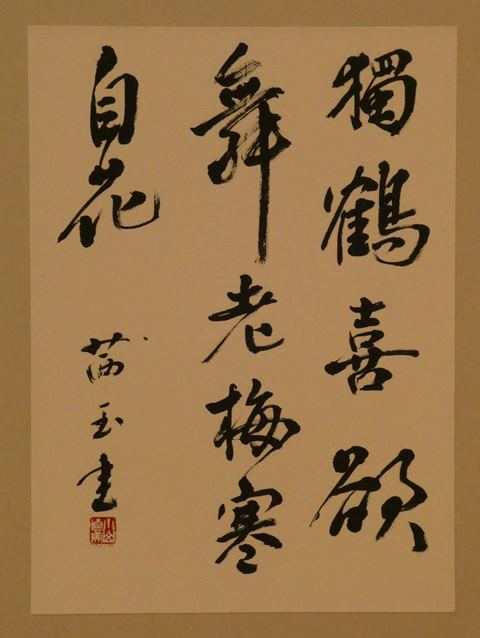 獨鶴喜欲
舞老梅寒
自花
玉書